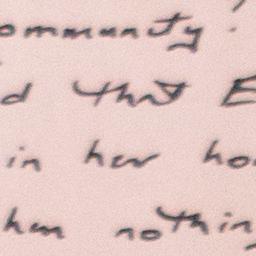 ommunity.
d that E
in her ho
hem nothing